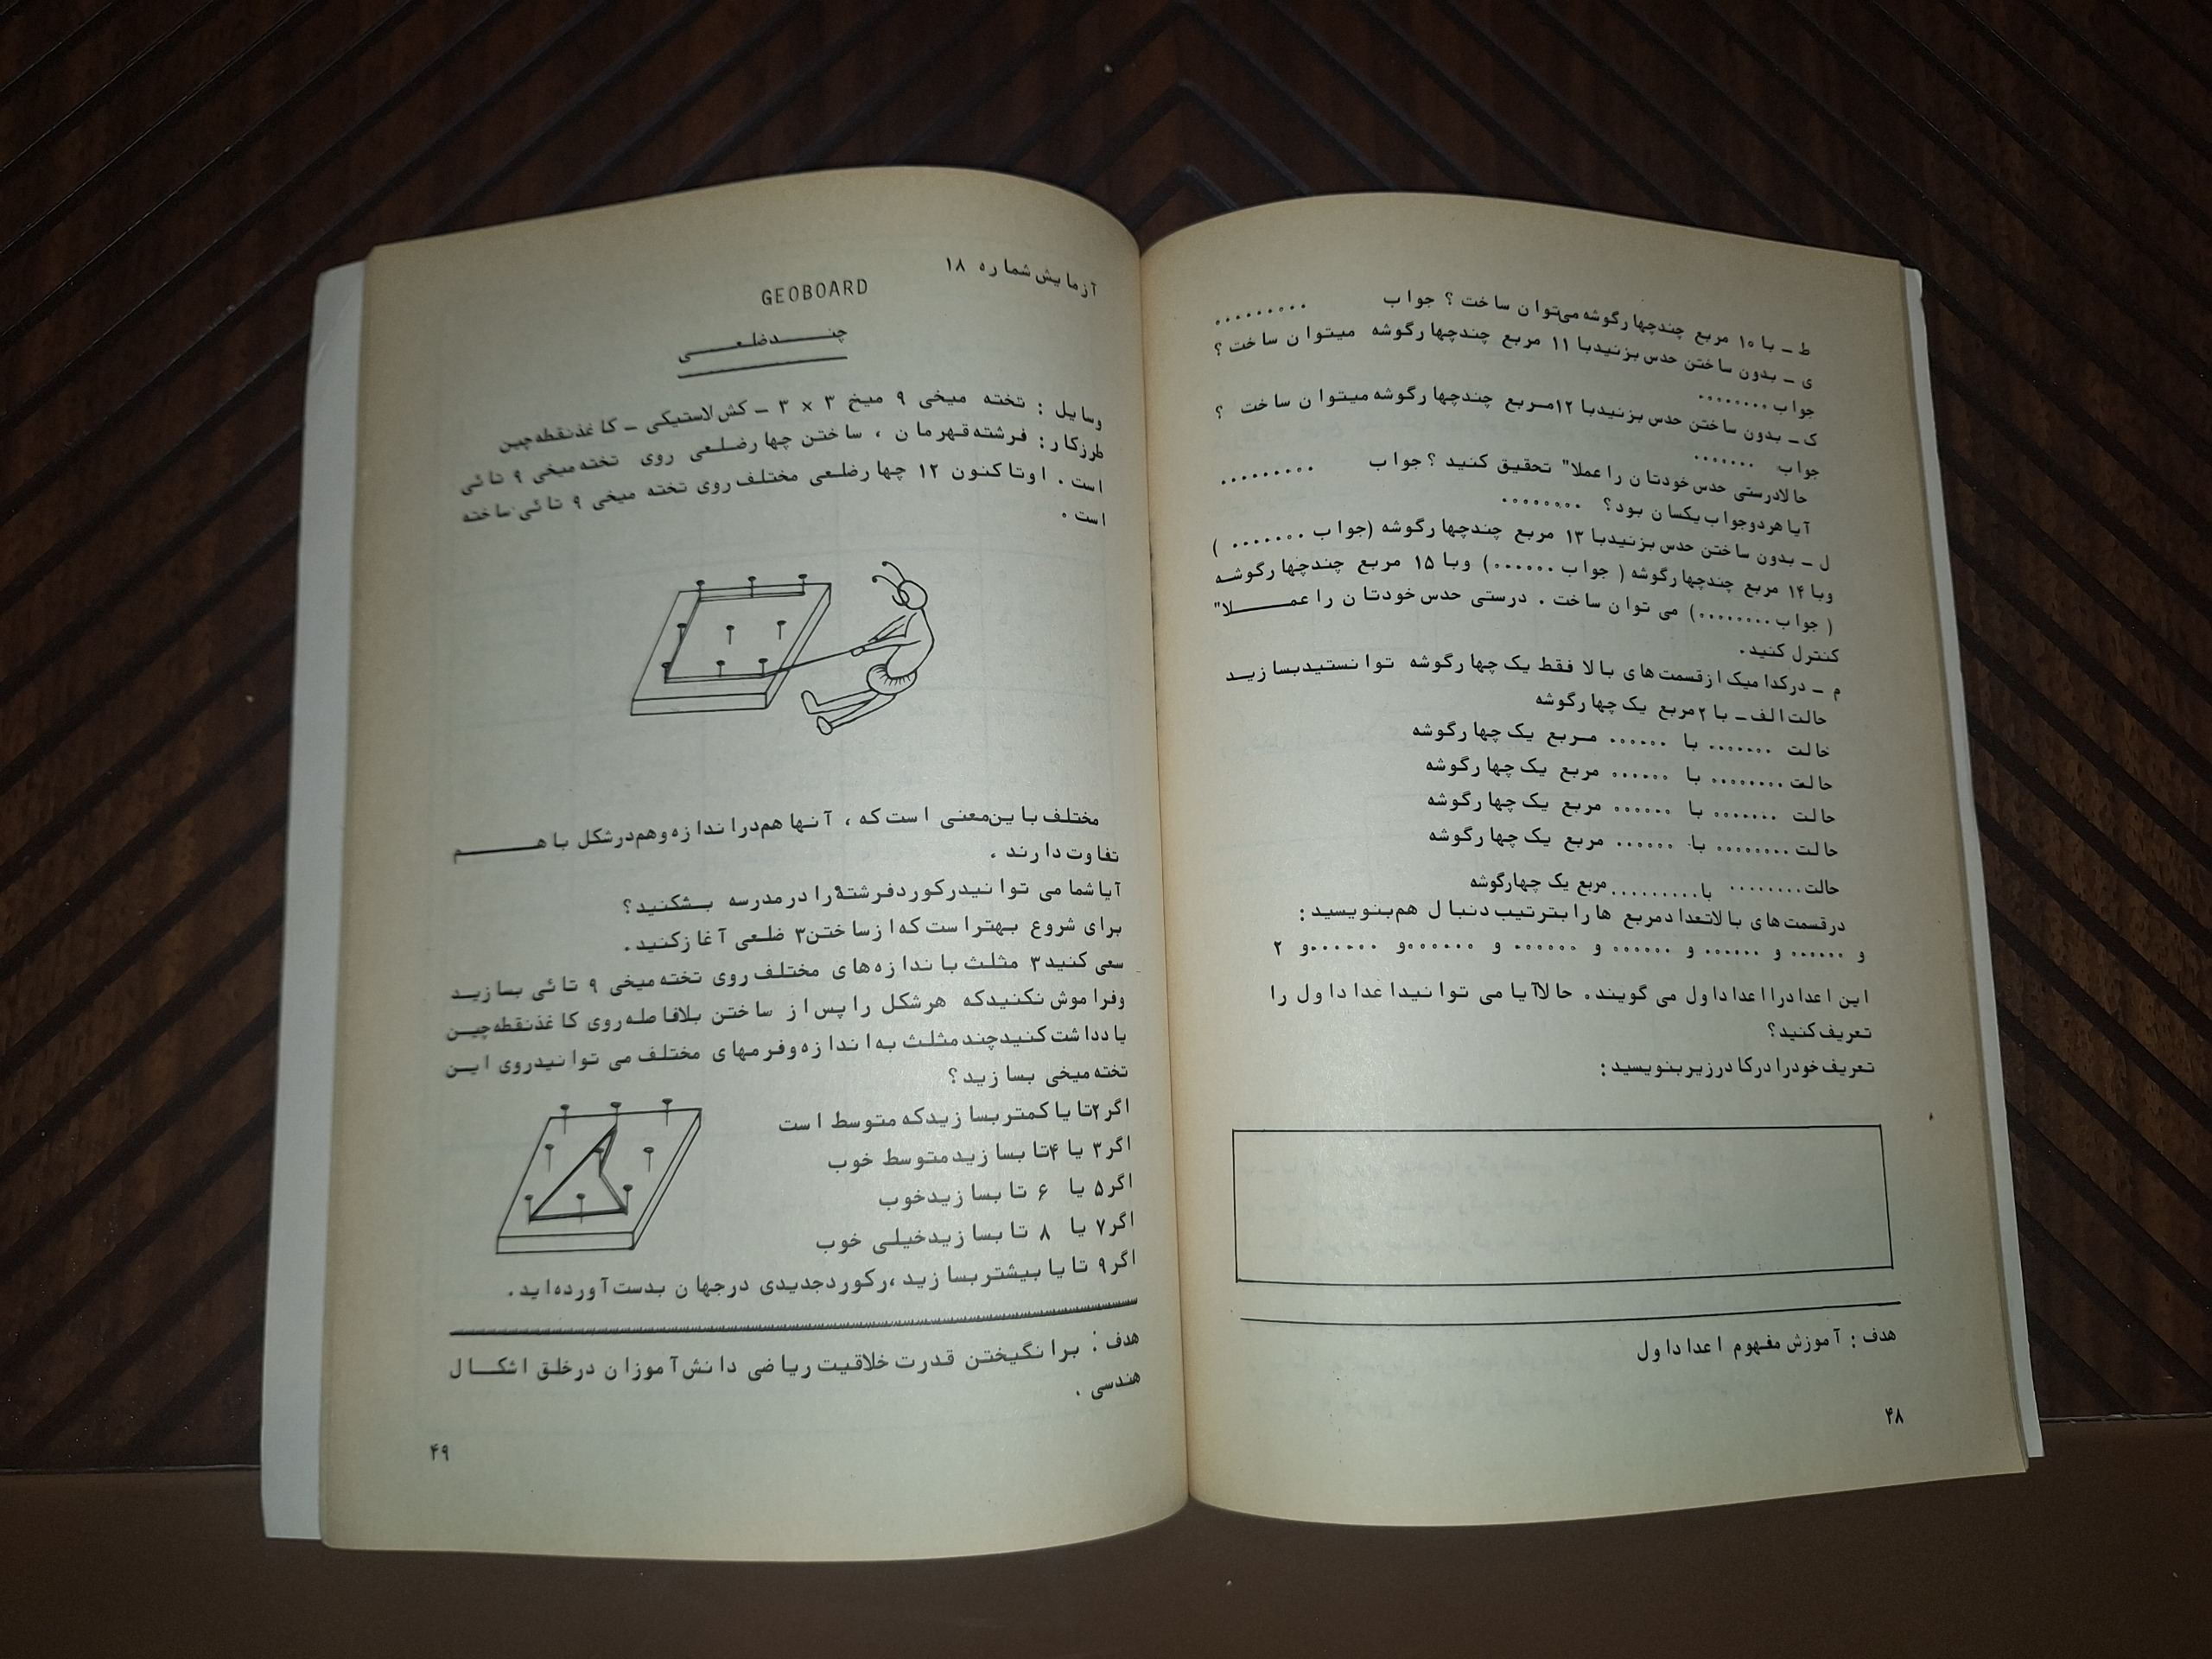 ط ـ با ۱۰ مربع چندچهارگوشه می‌توان ساخت ؟ جواب .........
ی ـ بدون ساختن حدس بزنیدبا ۱۱ مربع چندچهارگوشه میتوان ساخت ؟
جواب ........
ک ـ بدون ساختن حدس بزنیدبا ۱۲مربع چندچهارگوشه میتوان ساخت ؟
جواب .......
حالادرستی حدس خودتان را عملا" تحقیق کنید ؟ جواب .........
آیا هردوجواب یکسان بود؟ ........
ل ـ بدون ساختن حدس بزنیدبا ۱۳ مربع چندچهارگوشه (جواب ....... )
وبا ۱۴ مربع چندچهارگوشه ( جواب ......) وبا ۱۵ مربع چندچهارگوشه
( جواب ........) می توان ساخت . درستی حدس خودتان را عملا"
کنترل کنید.
م ـ درکدامیک ازقسمت های بالا فقط یک چهارگوشه توانستیدبسازید
حالت الف ـ با ۲مربع یک چهارگوشه
حالت ....... با ...... مربع یک چهارگوشه
حالت ........ با ...... مربع یک چهارگوشه
حالت ....... با ...... مربع یک چهارگوشه
حالت ........ با ...... مربع یک چهارگوشه
حالت ........ با ......... مربع یک چهارگوشه
درقسمت های بالاتعدادمربع ها رابترتیب دنبال هم‌بنویسید :
و ...... و ...... و ...... و ...... و .......و .......و ۲
این اعدادرااعداداول می گویند. حالاآیا می توانیداعداداول را
تعریف کنید؟
تعریف خودرا درکا درزیربنویسید :
هدف : آموزش مفهوم اعداداول
۴۸
آزمایش شماره ۱۸
GEOBOARD
چندضلعی
وسایل : تخته میخی ۹ میخ ۳ × ۳ ـ کش لاستیکی ـ کاغذنقطه‌چین
طرزکار : فرشته قهرمان ، ساختن چهارضلعی روی تخته میخی ۹ تائی
است . اوتاکنون ۱۲ چهارضلعی مختلف روی تخته میخی ۹ تائی ساخته
است .
مختلف باین‌معنی است که ، آنها هم‌دراندازه وهم‌درشکل باهم
تفاوت دارند .
آیا شما می توانیدرکوردفرشته‌را درمدرسه بشکنید؟
برای شروع بهتراست که ازساختن۳ ضلعی آغازکنید.
سعی کنید۳ مثلث باندازه‌های مختلف روی تخته میخی ۹ تائی بسازید
وفراموش نکنیدکه هرشکل راپس از ساختن بلافاصله روی کاغذنقطه‌چین
یادداشت کنیدچندمثلث به‌اندازه وفرمهای مختلف می توانیدروی این
تخته میخی بسازید؟
اگر۲تا یا کمتربسازیدکه متوسط است
اگر۳ یا ۴تا بسازیدمتوسط خوب
اگر۵ یا ۶ تا بسازیدخوب
اگر۷ یا ۸ تا بسازیدخیلی خوب
اگر۹ تا یا بیشتربسازید ،رکوردجدیدی درجهان بدست آورده‌اید .
هدف : برانگیختن قدرت خلاقیت ریاضی دانش‌آموزان درخلق اشکال
هندسی .
۴۹